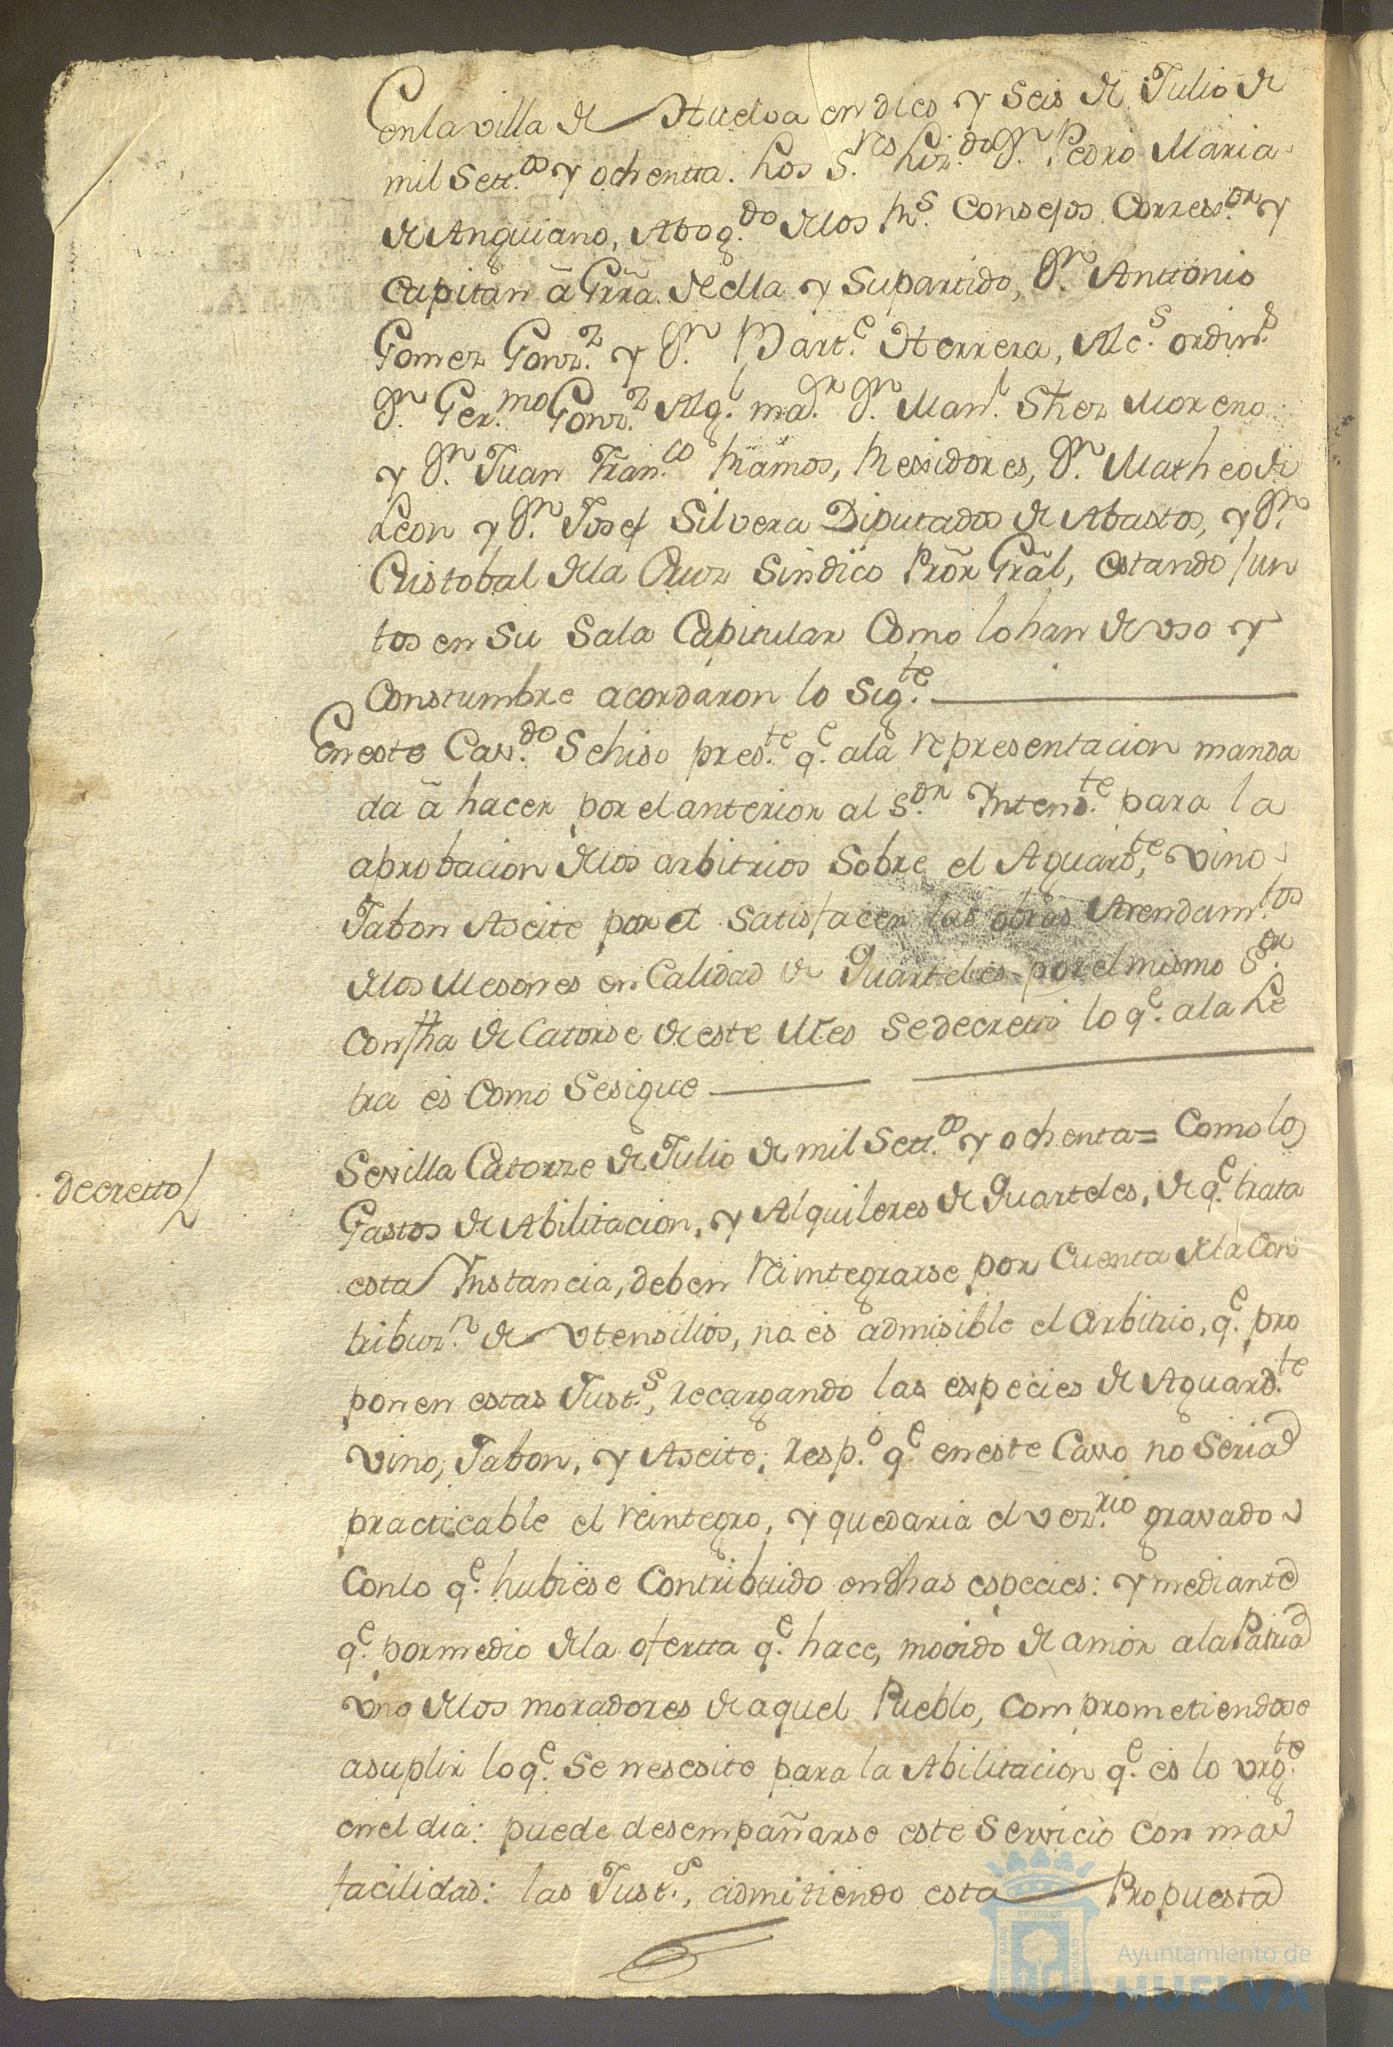 En la villa de Huelva en dies y seis de Julio de
mil Sett.os y ochentta. Los S.res Liz.do Dn. Pedro Maria
de Anguiano, Abog.do de los Rs. Consejos Corregor. y
Capitan â Grra. de ella y su partido, Dn. Anttonio
Gomez Gonz.z y Dn. Bart.e Herrera, Alc.s ordin.s
Dn. Ger.mo Gonz.z Alg.l ma.or Dn. Man.l Shez Moreno
y Dn. Juan Fran.co Ramos, Rexidores, Dn. Matheo de
Leon y Dn. Josef Silvera Diputados de Abastos, y Dn.
Cristobal de la Cruz Sindico Prôr Grâl, estando jun
tos en su Sala Capitular como lo han de uso y
Constumbre acordaron lo sig.te
En este Cav.do Se hiso pres.te q.e a la representacion manda
da â hacer por el anterior al S.or Yntend.te para la
aprobacion de los arbitrios sobre el Aguard.te, vino
Jabon Aseite para el satisfacer las obras Arendam.tos
de los Mesones en Calidad de Quarteles por el mismo S.or
con fha de Catorse de este Mes se decretto lo q.e a la Le
tra es como se sigue
decretto
Sevilla Catorze de Julio de mil Sett.os y ochenta = Como los
Gastos de Abilitacion, y Alquileres de Quarteles, de q.e trata
esta Ynstancia, deben reintegrarse por Cuenta de la Con
tribuz.n de Utensilios, no es admisible el arbitrio, q.e pro
ponen estas Just.s, recargando las especies de Aguard.te
vino, Jabon, y Aseite; resp.o q.e en este Caso no seria
practicable el reintegro, y quedaria el vez.rio gravado
con lo q.e hubiese Contribuido en dhas especies: y mediante
q.e por medio de la ofertta q.e hace, movido de amor a la Patria
uno de los moradores de aquel Pueblo, comprometiendose
a suplir lo q.e se nesesite para la Abilitacion q.e es lo urg.te
en el dia: puede desempañarse este Servicio con mas
facilidad: las Just.s, admitiendo esta Propuesta
Ayuntamiento de
HUELVA